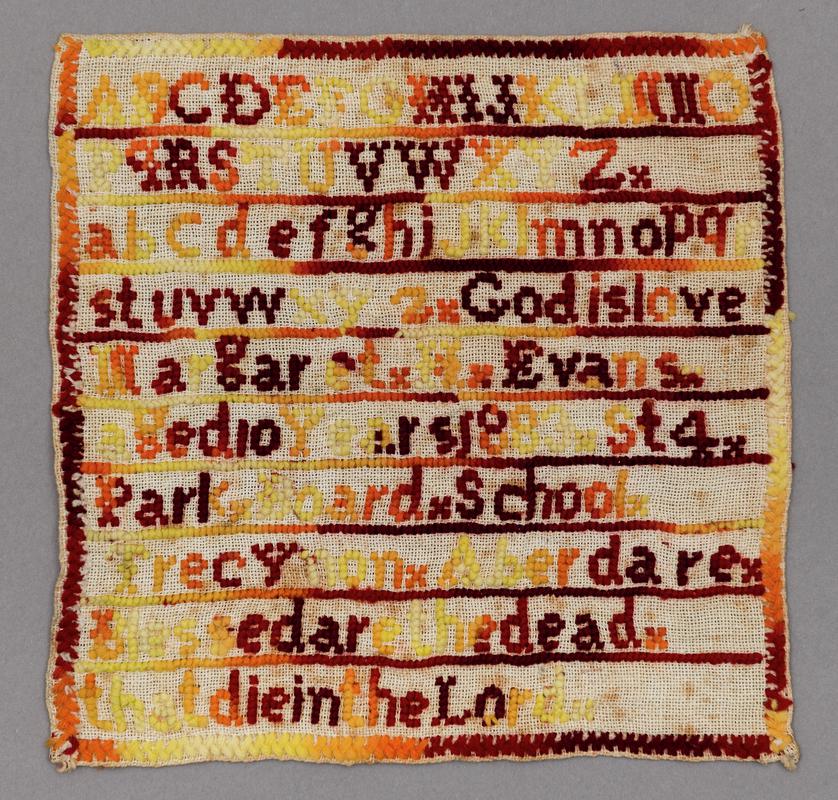 ABCDEFGHIJKLMNO
PQRSTUVWXYZx
abcdefghijklmnopqr
stuvwxyzxGodislove
Margaretx xEvansx
agedioYears 1883x St4xx
ParkBoardxSchoolx
Trecynonx Aberdarex
Blessedarethedeadx
thatdieintheLordx